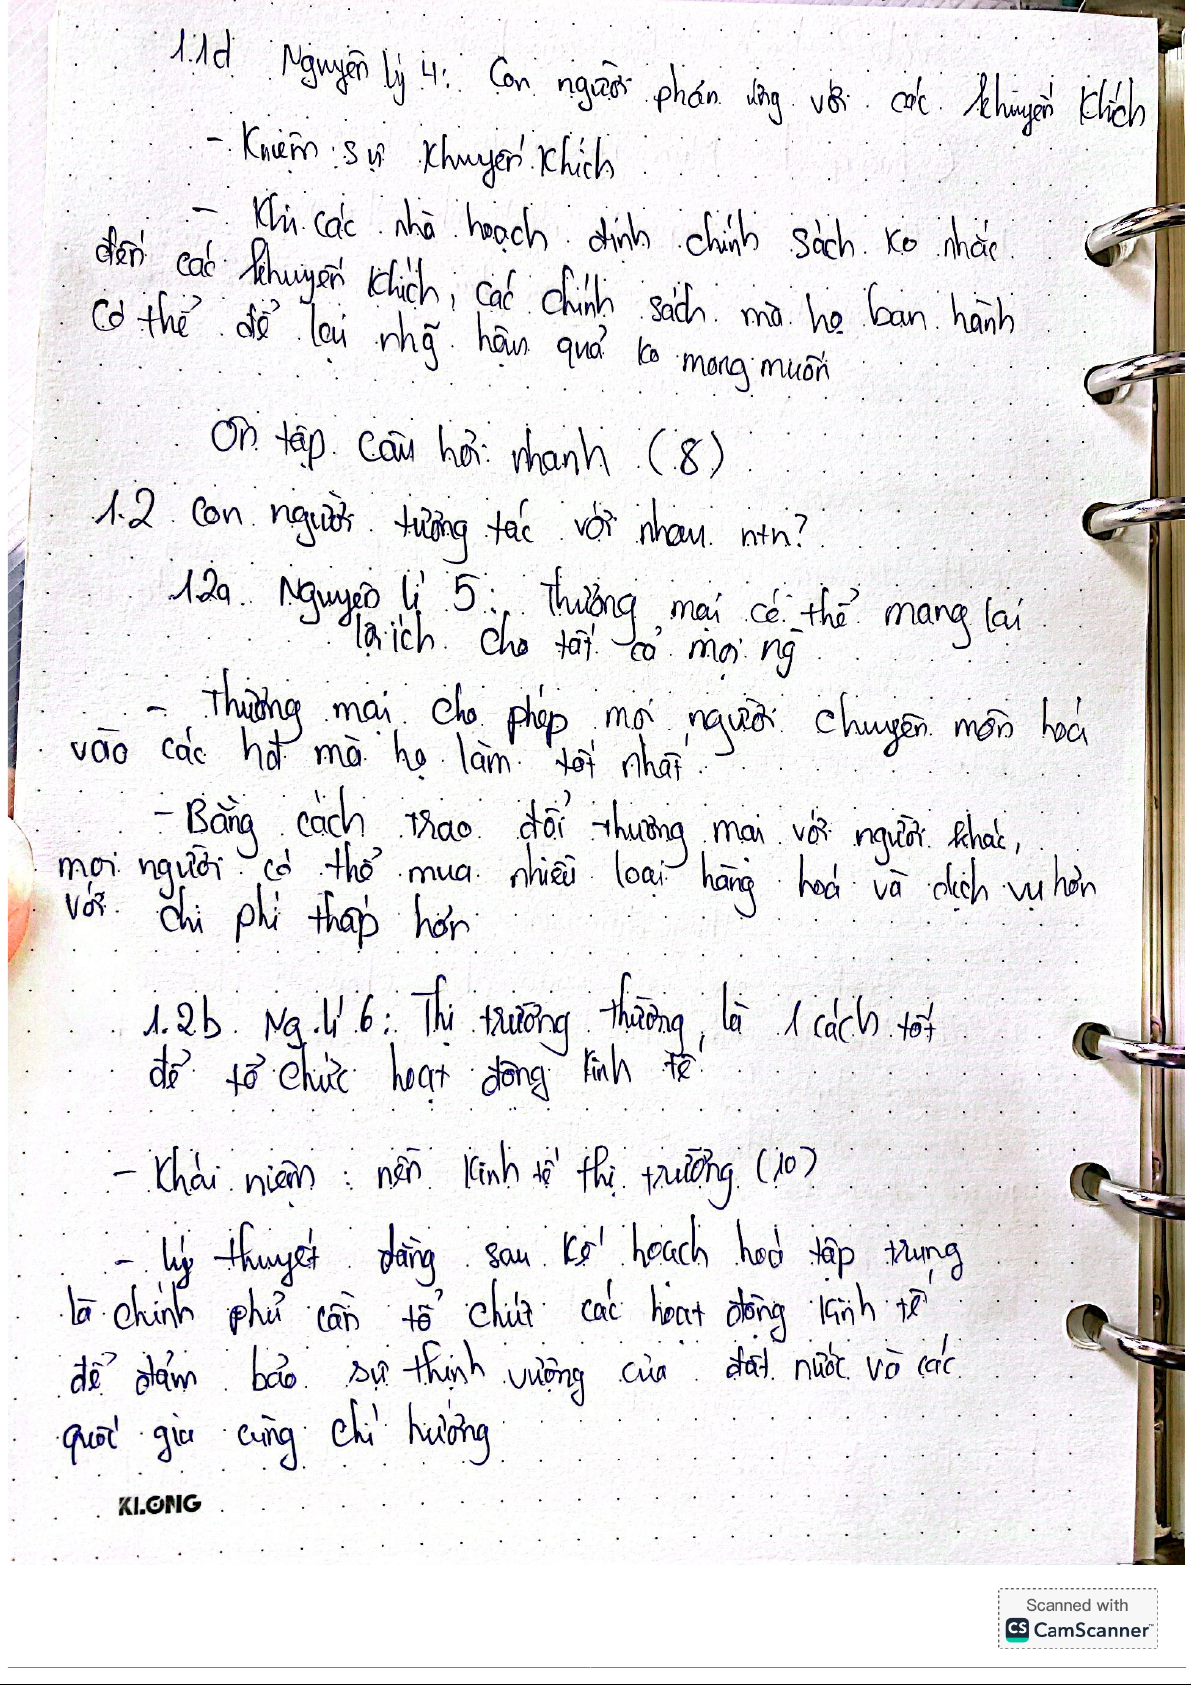 1.1d Nguyên lý 4: Con người phản ứng với các khuyến khích
- Kniệm: sự khuyến khích
- Khi các nhà hoạch định chính sách ko nhắc
đến các khuyến khích, các chính sách mà họ ban hành
có thể để lại nhg̃ hậu quả ko mong muốn
Ôn tập câu hỏi nhanh (8)
1.2 Con người tương tác với nhau ntn?
1.2a Nguyên lí 5: Thương mại có thể mang lại
lợi ích cho tất cả mọi ng̀
- Thương mại cho phép mọi người chuyên môn hoá
vào các hđ mà họ làm tốt nhất
- Bằng cách trao đổi thương mại với người khác,
mọi người có thể mua nhiều loại hàng hoá và dịch vụ hơn
với chi phí thấp hơn
1.2b Ng.lí 6: Thị trường thường là 1 cách tốt
để tổ chức hoạt động kinh tế
- Khái niệm: nền kinh tế thị trường (10)
- Lý thuyết đằng sau kế hoạch hoá tập trung
là chính phủ cần tổ chức các hoạt động kinh tế
để đảm bảo sự thịnh vượng của đất nước và các
quốc gia cùng chí hướng
KLONG
Scanned with
CS CamScanner